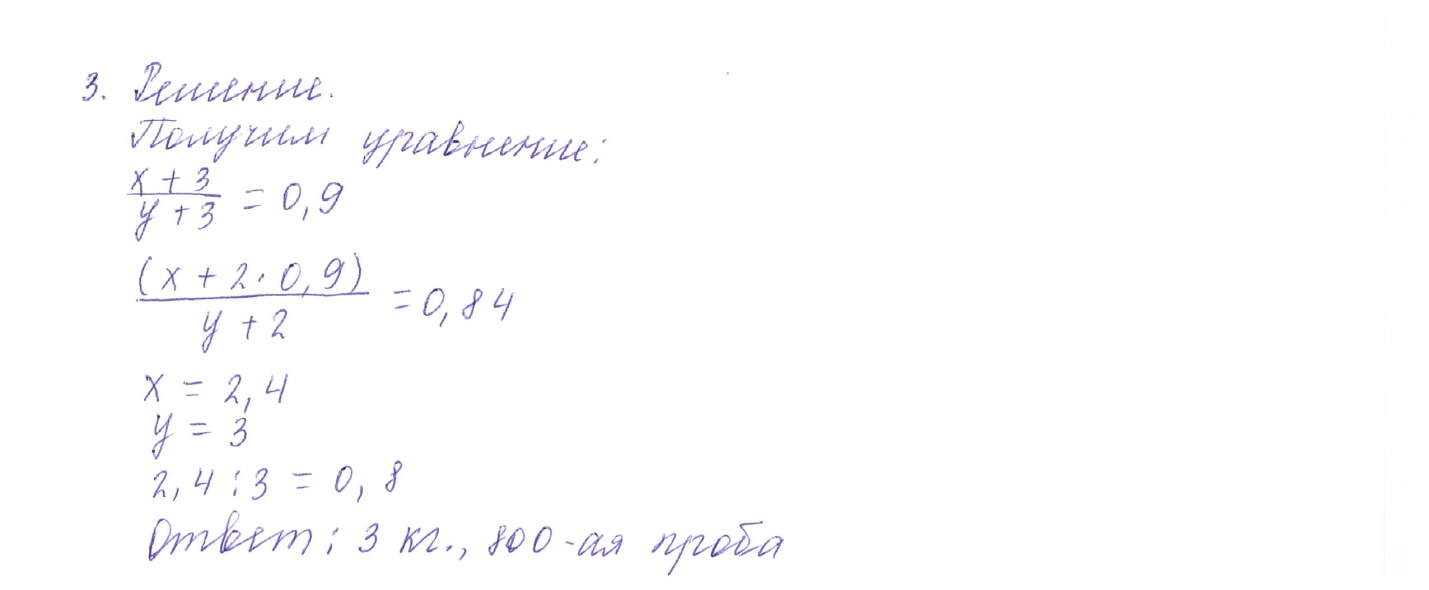 3. Решение.
Получим уравнение:
x + 3 / y + 3 = 0,9
(x + 2 · 0,9) / y + 2 = 0,84
x = 2,4
y = 3
2,4 : 3 = 0,8
Ответ: 3 кг., 800-ая проба